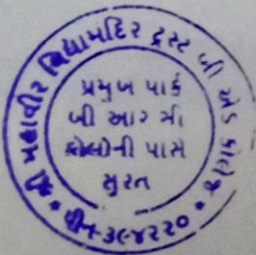 શ્રી મહાવીર વિદ્યામંદિર ટ્રસ્ટ બી એડ કોલેજ
પ્રમુખ પાર્ક
બી આર સી
કોલોની પાસે
સુરત
પીન-૩૯૪૨૨૦